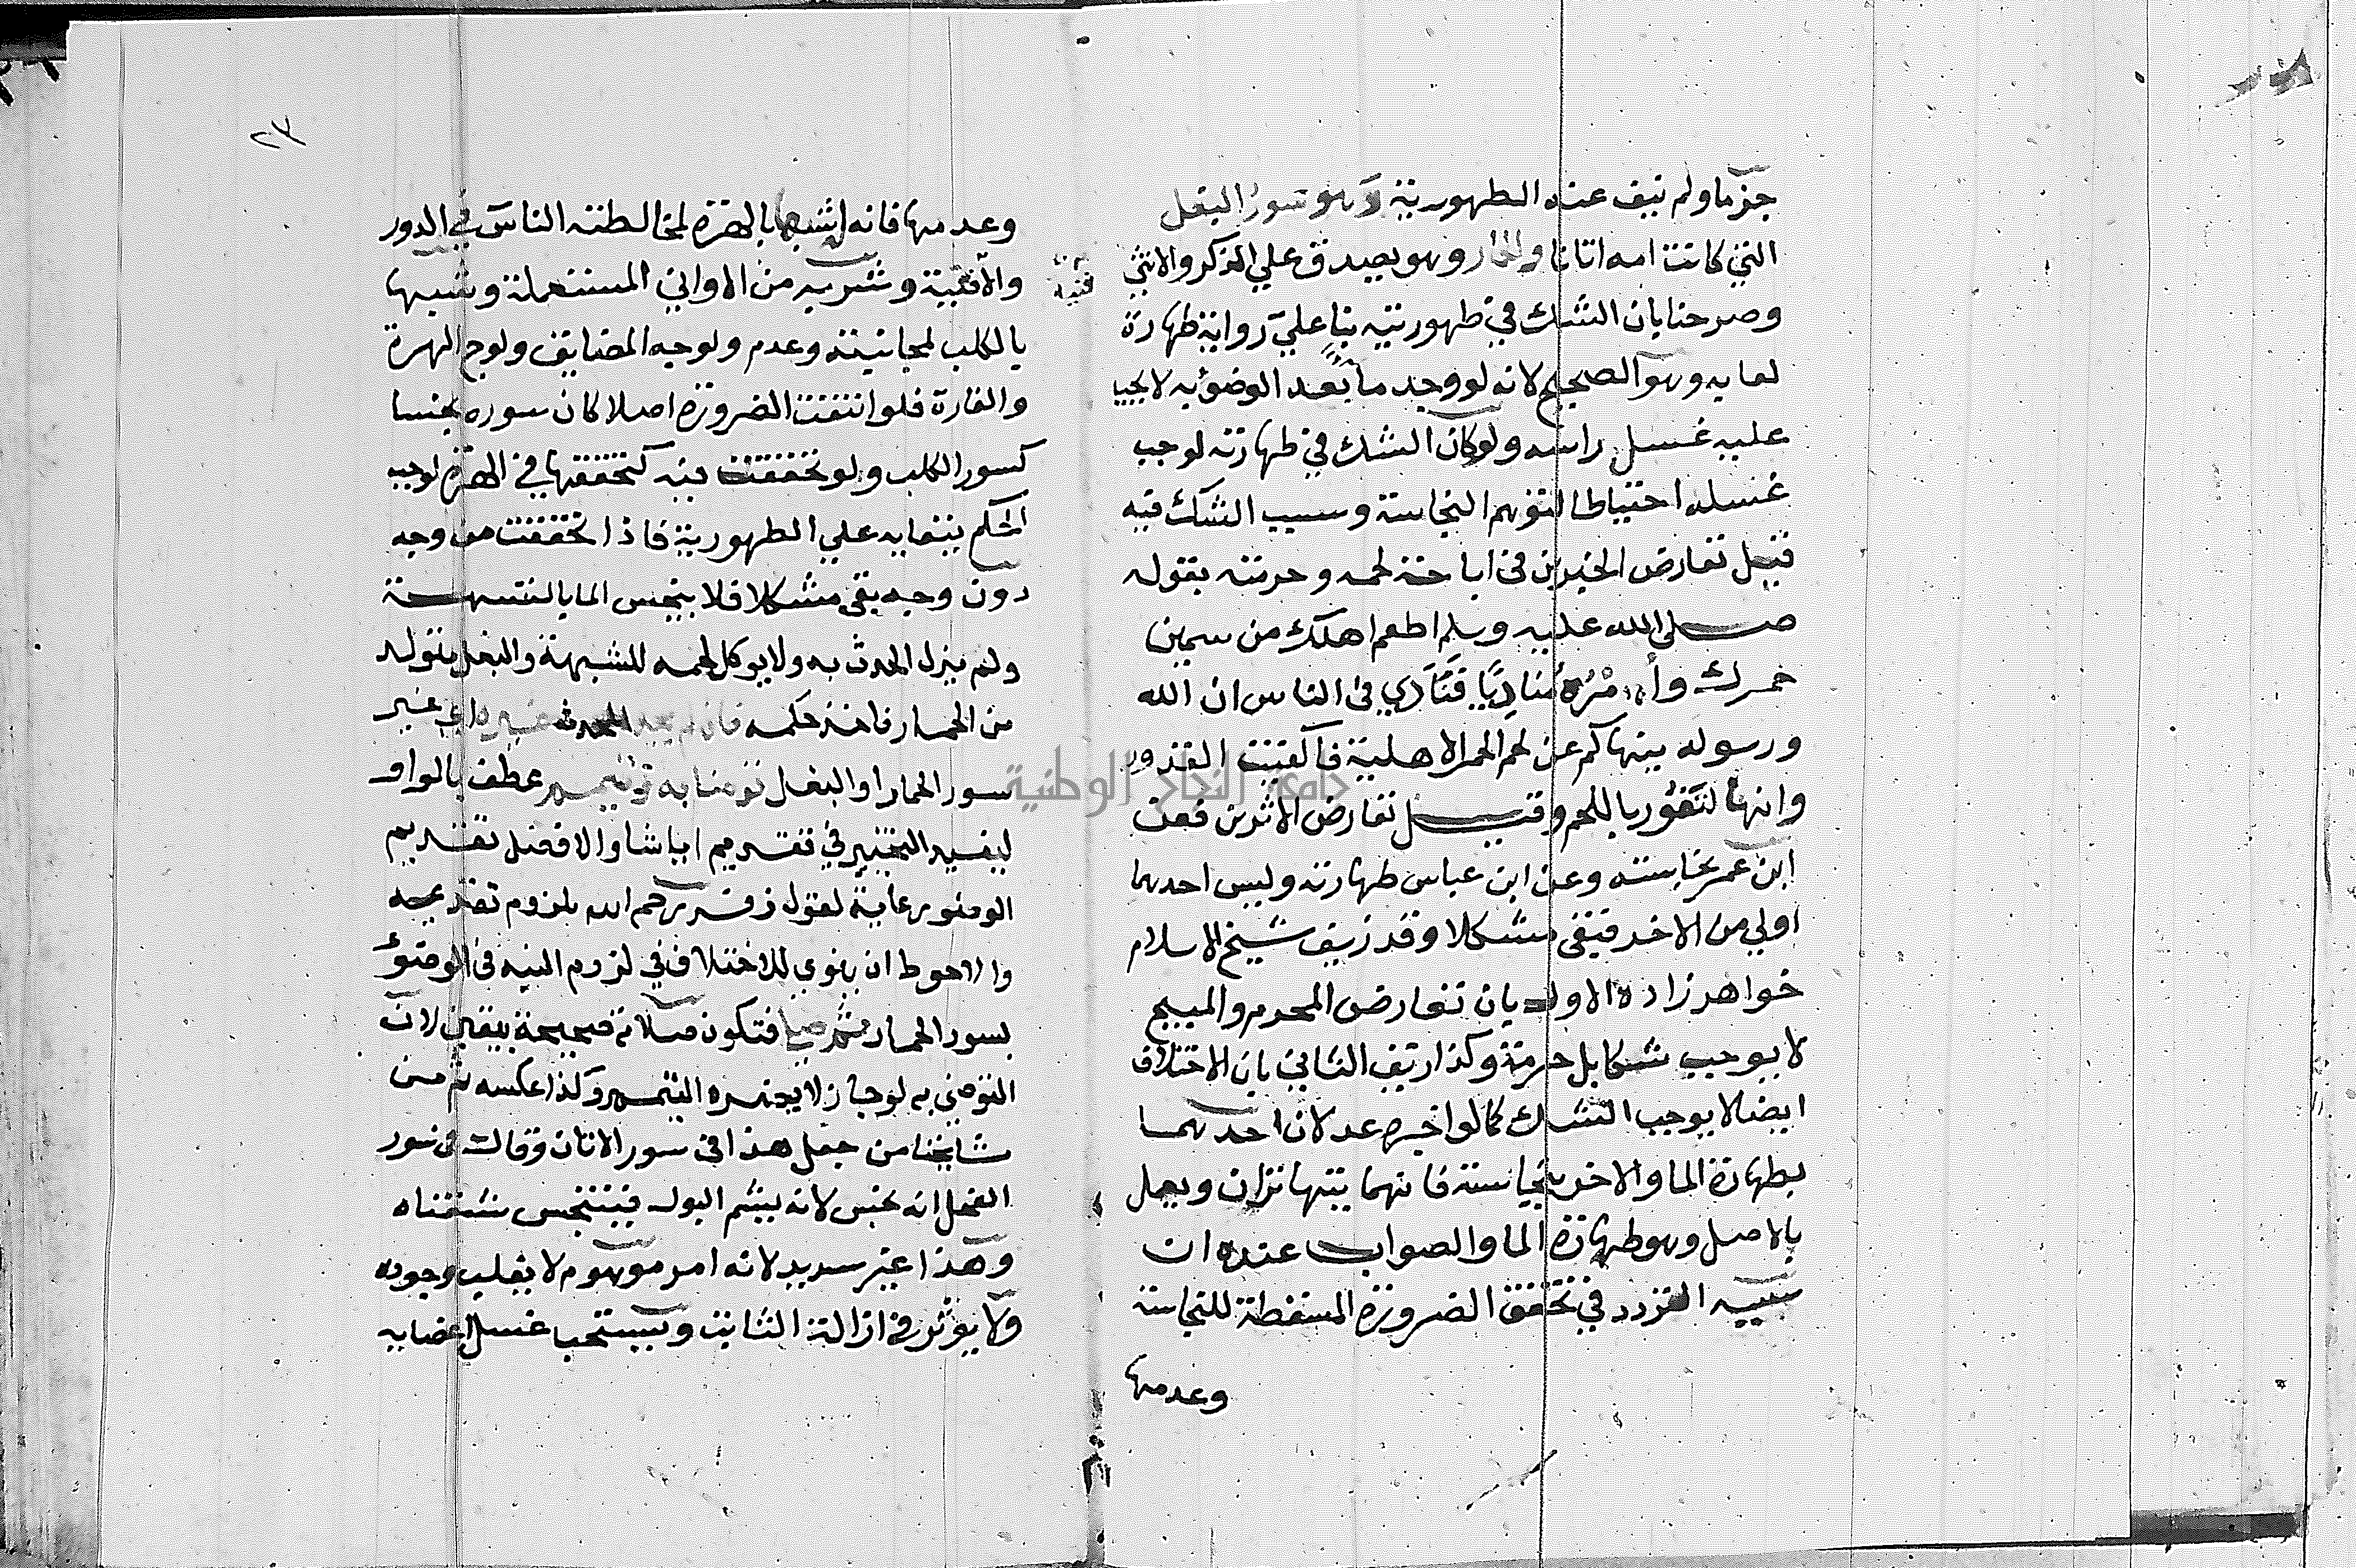 جزما ولم ينف عنه الطهورية وهو سور البغل
التي كانت امه اتانا والحمار وهو يصدق علي الذكر والانثي
وصرحنا بان الشك في طهوريته بناً علي رواية طهارة
لعابه وهو الصحيح لانه لو وجد ماً بعد الوضؤ به لا يجب
عليه غسل راسه ولو كان الشك في طهارته لوجب
غسله احتياطا لتوهم النجاسة وسبب الشك فيه
قيل تعارض الخبرين في اباحة لحمه وحرمته بقوله
صلى الله عليه وسلم اطعم اهلك من سمين
حمرك وأمْرُهُ مُناديًا فَنَادي في الناس ان الله
ورسوله ينهاكم عن لحم الحمر الاهلية فاكفيت القدور
وانها لتفور باللحم وقيل تعارض الاثرين فعن
ابن عمر نجاسته وعن ابن عباس طهارته وليس احدهما
اولي من الاخر فيبقى مشكلا وقد زيف شيخ الاسلام
خواهر زاده الاول بان تعارض المحرم والمبيح
لا يوجب شكا بل حرمة وكذا زيف الثاني بان الاختلاف
ايضا لا يوجب الشك كما لو اخبر عدلان احدهما
بطهارة الما والاخر بنجاسته فانهما يتهاتران ويعمل
بالاصل وهو طهارة الما والصواب عنده ان
سببه التردد في تحقق الضرورة المسقطة للنجاسة
وعدمها
٢٣
وعدمها فانه اشبه بالهرة لمخالطته الناس في الدور
والافنية وشربه من الاواني المستعملة وشبيها
بالكلب لمجانبته وعدم ولوجه المضايق ولوج الهرة
والفارة فلو انتفت الضرورة اصلا كان سوره نجسا
كسور الكلب ولو تحققت فيه كتحققها في الهرة لوجب
الحكم ببقايه علي الطهورية فاذا تحققت من وجه
دون وجه بقي مشكلا فلا ينجس الما بالشبهة
ولم يزل الحدث به ولا يوكل لحمه للشبهة والبغل متولد
من الحمار فاخذ حكمه فان لم يجد المحدث غيره اي غير
سور الحمار او البغل توضا به وتيمم عطف بالواو
ليفيد التخيير في تقديم ايا شا والافضل تقديم
الوضو رعاية لقول زفر رحمه الله بلزوم تقديمه
والاحوط ان ينوي للاختلاف في لزوم النيه في الوضؤ
بسور الحمار ثم صلى فتكون صلاته صحيحة بيقين لان
التوضي به لو جاز لا يضره التيمم وكذا عكسه ثم من
مشايخنا من جعل هذا في سور الاتان وقال في سور
الفحل انه نجس لانه يشم البول فيتنجس شفتاه
وهذا غير سديد لانه امر موهوم لا يغلب وجوده
ولا يوثر في ازالة الثابت ويستحب غسل اعضايه
جامعة النجاح الوطنية